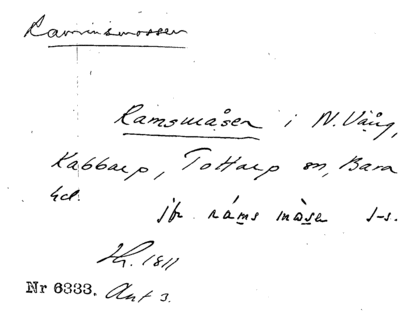 Ramsmossen
Ramsmåsen i N. Vång,
Kabbarp, Tottarp sn, Bara
hd.
jfr ráms màse s-s.
Sk. 1811
Nr 6333. Ant 3.